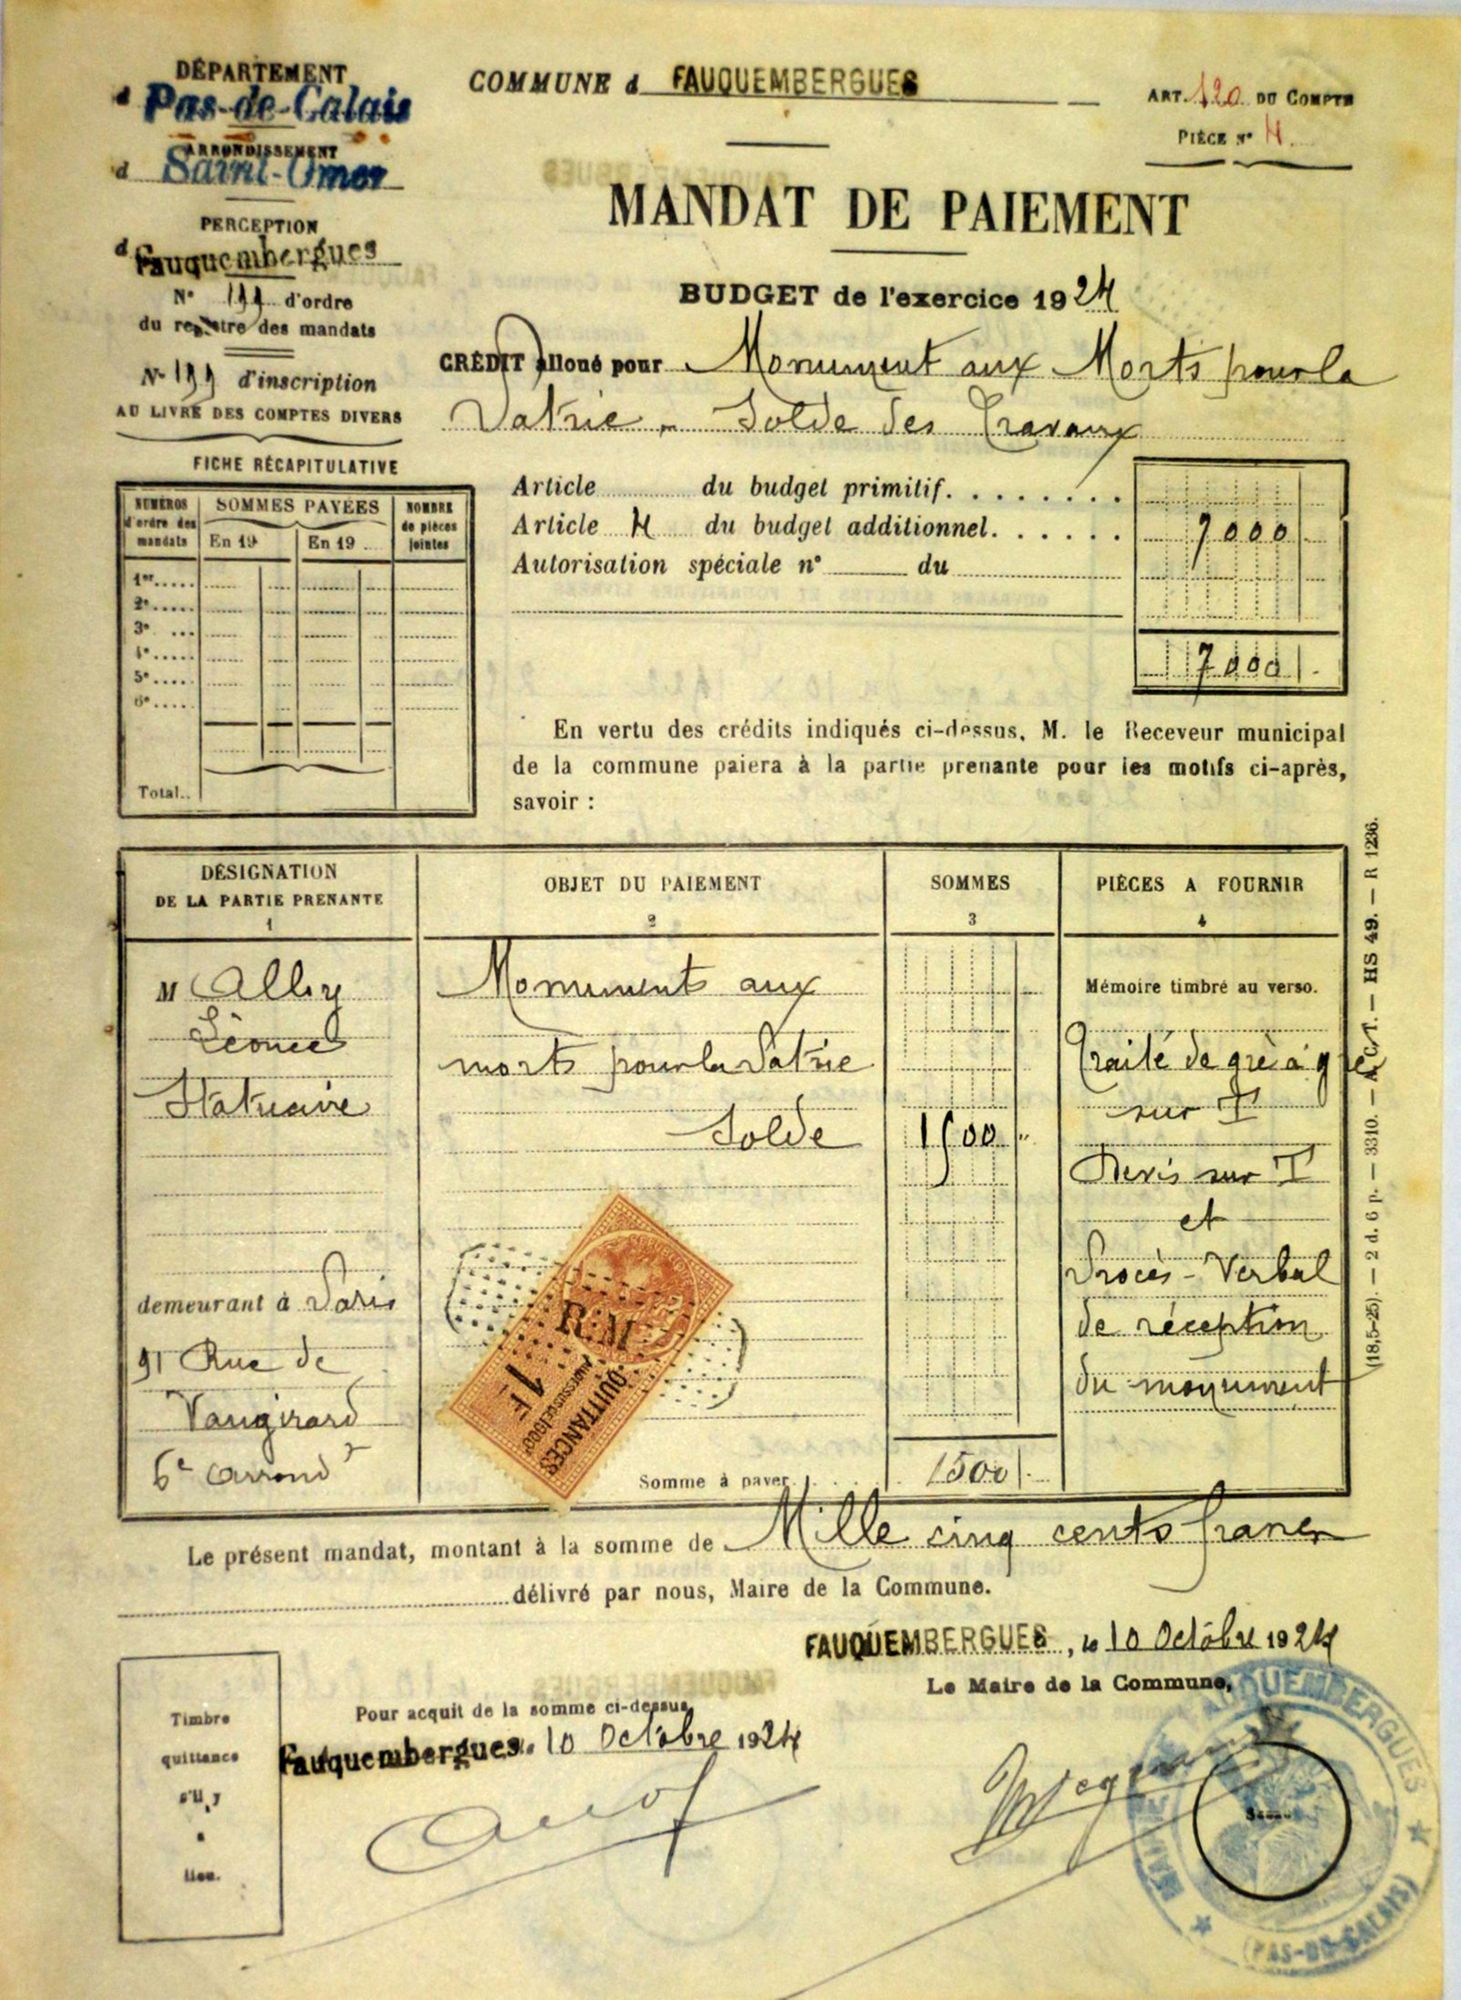 DÉPARTEMENT
d Pas-de-Calais
ARRONDISSEMENT
d Saint-Omer
PERCEPTION
d Fauquembergues
N° 199 d'ordre
du registre des mandats
N° 199 d'inscription
AU LIVRE DES COMPTES DIVERS
COMMUNE d FAUQUEMBERGUES
ART. 120 DU COMPTE
PIÈCE N° 4
MANDAT DE PAIEMENT
BUDGET de l'exercice 1924
CRÉDIT alloué pour Monument aux Morts pour la
Patrie - Solde des Travaux
FICHE RÉCAPITULATIVE
NUMÉROS d'ordre des mandats
SOMMES PAYÉES
En 19
En 19
NOMBRE de pièces jointes
1er
2e
3e
4e
5e
6e
Total
Article du budget primitif
Article 4 du budget additionnel 7000
Autorisation spéciale n° du
7000
En vertu des crédits indiqués ci-dessus, M. le Receveur municipal
de la commune paiera à la partie prenante pour les motifs ci-après,
savoir :
DÉSIGNATION
DE LA PARTIE PRENANTE
1
OBJET DU PAIEMENT
2
SOMMES
3
PIÈCES A FOURNIR
4
M Alloy
Léonce
Statuaire
demeurant à Paris
91 Rue de
Vaugirard
6e Arrondt
Monuments aux
morts pour la Patrie
Solde
R.M
QUITTANCES
1F
Somme à payer
1500
1500
Mémoire timbré au verso.
Traité de gré à gré
sur T
Devis sur T
et
Procès-Verbal
de réception
du monument
(18,5-25). — 2 d. 6 p. — 3310. — A. C. T. — HS 49. — R 1236.
Le présent mandat, montant à la somme de Mille cinq cents francs
délivré par nous, Maire de la Commune.
FAUQUEMBERGUES, le 10 Octobre 1924
Le Maire de la Commune,
Timbre
quittance
s'il y
a
lieu.
Pour acquit de la somme ci-dessus
Fauquembergues. 10 Octobre 1924
MAIRIE DE FAUQUEMBERGUES
(PAS-DE-CALAIS)